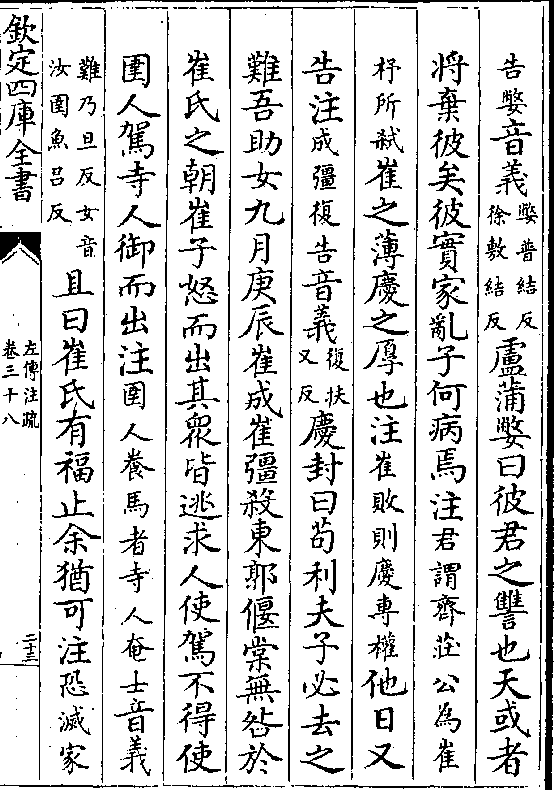 告嫳音義嫳普結反
徐敷結反盧蒲嫳曰彼君之讐也天或者
將棄彼矣彼實家亂子何病焉注君謂齊莊公為崔
杼所弑崔之薄慶之厚也注崔敗則慶専權他日又
告注成彊復告音義復扶
又反慶封曰茍利夫子必去之
難吾助女九月庚辰崔成崔彊殺東郭偃棠無咎於
崔氏之朝崔子怒而出其衆皆逃求人使駕不得使
圉人駕寺人御而出注圉人養馬者寺人奄士音義
難乃旦反女音
汝圉魚吕反且曰崔氏有福止余猶可注恐滅家
欽定四庫全書
左傳注疏
卷三十八
二十三